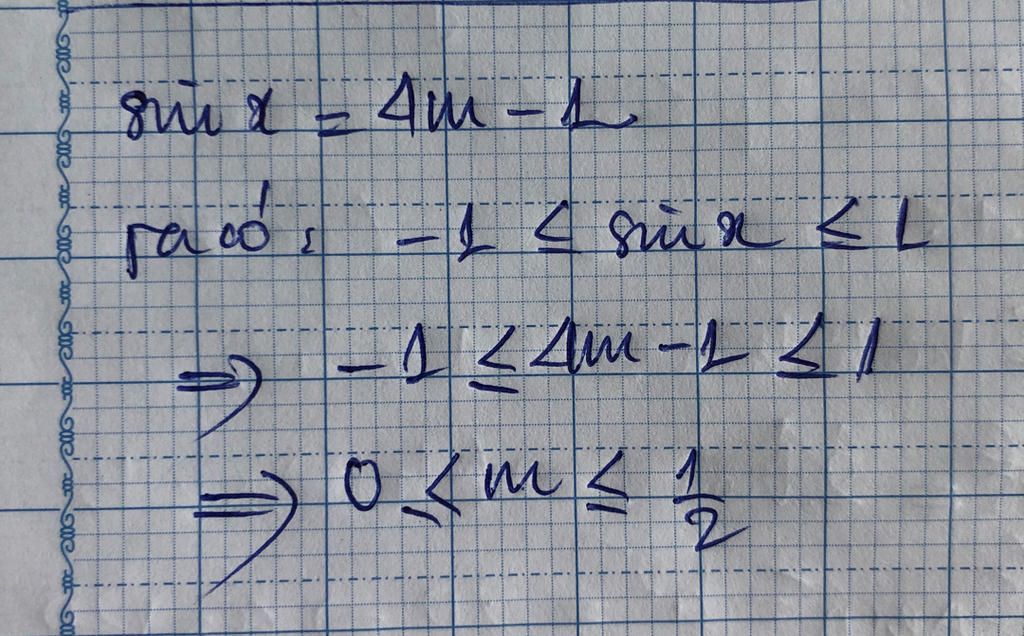 sin x = 4m - 1
Ta có: -1 ≤ sin x ≤ 1
⇒ -1 ≤ 4m - 1 ≤ 1
⇒ 0 ≤ m ≤ 1/2